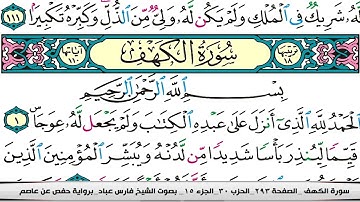 لَّهُۥ شَرِيكٌ فِى ٱلْمُلْكِ وَلَمْ يَكُن لَّهُۥ وَلِىٌّ مِّنَ ٱلذُّلِّ وَكَبِّرْهُ تَكْبِيرًۢا ١١١
سُورَةُ الكَهْفِ
آياتها ١١٠
بِسْمِ ٱللَّهِ ٱلرَّحْمَٰنِ ٱلرَّحِيمِ
ٱلْحَمْدُ لِلَّهِ ٱلَّذِىٓ أَنزَلَ عَلَىٰ عَبْدِهِ ٱلْكِتَٰبَ وَلَمْ يَجْعَل لَّهُۥ عِوَجَا ١
قَيِّمًا لِّيُنذِرَ بَأْسًا شَدِيدًا مِّن لَّدُنْهُ وَيُبَشِّرَ ٱلْمُؤْمِنِينَ ٱلَّذِينَ
سورة الكهف _ الصفحة ٢٩٣ _ الحزب ٣٠ _ الجزء ١٥ _ بصوت الشيخ فارس عباد _ برواية حفص عن عاصم